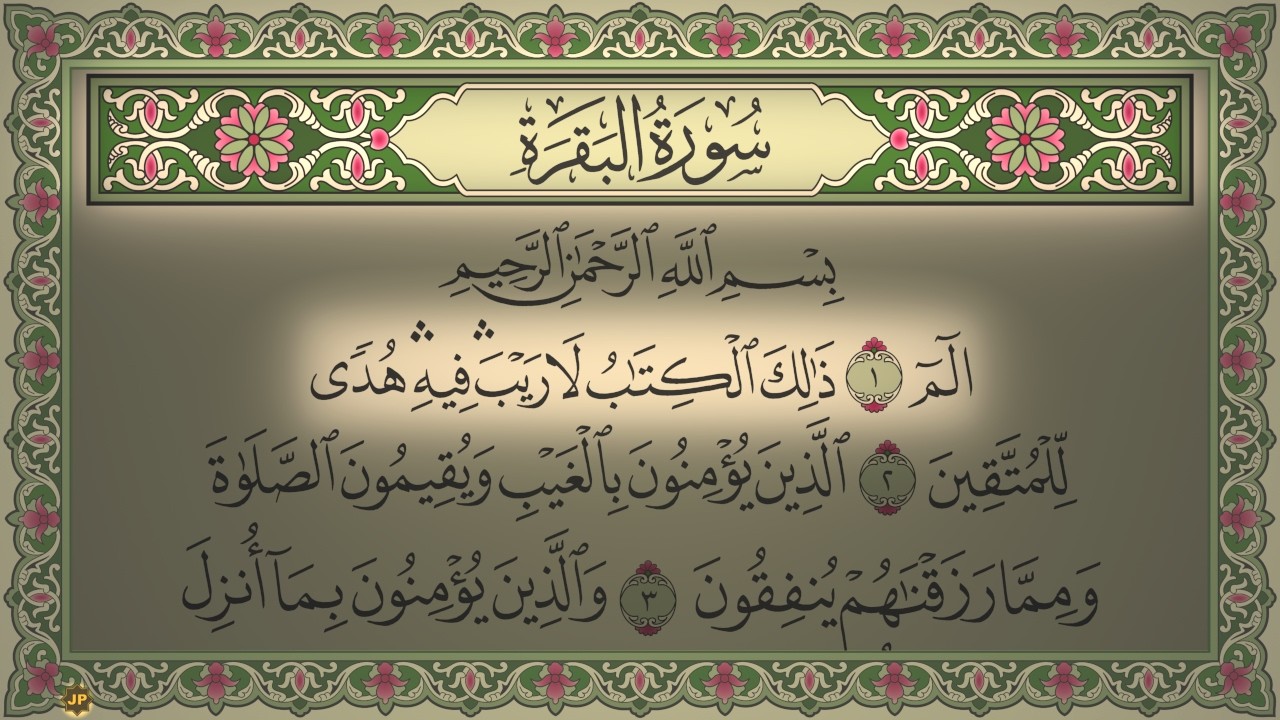 سُورَةُ البَقَرَةِ
بِسْمِ ٱللَّهِ ٱلرَّحْمَٰنِ ٱلرَّحِيمِ
الٓمٓ ١ ذَٰلِكَ ٱلْكِتَٰبُ لَا رَيْبَ ۛ فِيهِ ۛ هُدًى
لِّلْمُتَّقِينَ ٢ ٱلَّذِينَ يُؤْمِنُونَ بِٱلْغَيْبِ وَيُقِيمُونَ ٱلصَّلَوٰةَ
وَمِمَّا رَزَقْنَٰهُمْ يُنفِقُونَ ٣ وَٱلَّذِينَ يُؤْمِنُونَ بِمَآ أُنزِلَ
JP